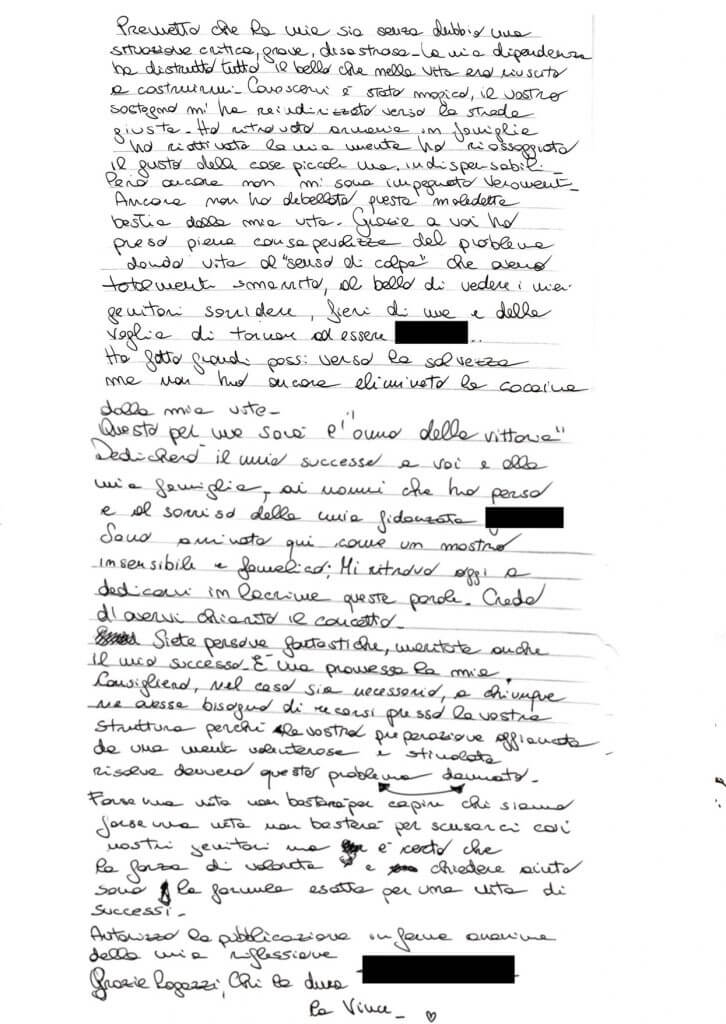 Premetto che la mia sia senza dubbio una
situazione critica, grave, disastrosa. La mia dipendenza
ha distrutto tutto il bello che nella vita ero riuscito
a costruirmi. Conoscervi è stato magico, il vostro
sostegno mi ha reindirizzato verso la strada
giusta. Ho ritrovato armonia in famiglia
ho riattivato la mia mente ho riassaggiato
il gusto delle cose piccole ma indispensabili.
Però ancora non mi sono impegnato veramente.
Ancora non ho debellato questa maledetta
bestia dalla mia vita. Grazie a voi ho
preso piena consapevolezza del problema
dando vita al "senso di colpa" che avevo
totalmente smarrito, al bello di vedere i miei
genitori sorridere, fieri di me e della
voglia di tornare ad essere
Ho fatto grandi passi verso la salvezza
ma non ho ancora eliminato la cocaina
dalla mia vita.
Questo per me sarà l'"anno della vittoria"
Dedicherò il mio successo a voi e alla
mia famiglia, ai nonni che ho perso
e al sorriso della mia fidanzata
Sono arrivato qui come un mostro
insensibile e famelico; Mi ritrovo oggi a
dedicarvi in lacrime queste parole. Credo
d'avervi chiarito il concetto.
Siete persone fantastiche, meritate anche
il mio successo. È una promessa la mia.
Consiglierò, nel caso sia necessario, a chiunque
ne avesse bisogno di recarsi presso la vostra
struttura perché la vostra preparazione affiancata
da una mente volenterosa e stimolata
risolve davvero questo problema dannato.
Forse una vita non basterà per capire chi siamo
forse una vita non basterà per scusarci coi
nostri genitori ma è certo che
la forza di volontà e chiedere aiuto
sono la formula esatta per una vita di
successi.
Autorizzo la pubblicazione in forma anonima
della mia riflessione
Grazie Ragazzi, Chi la dura
la Vince.